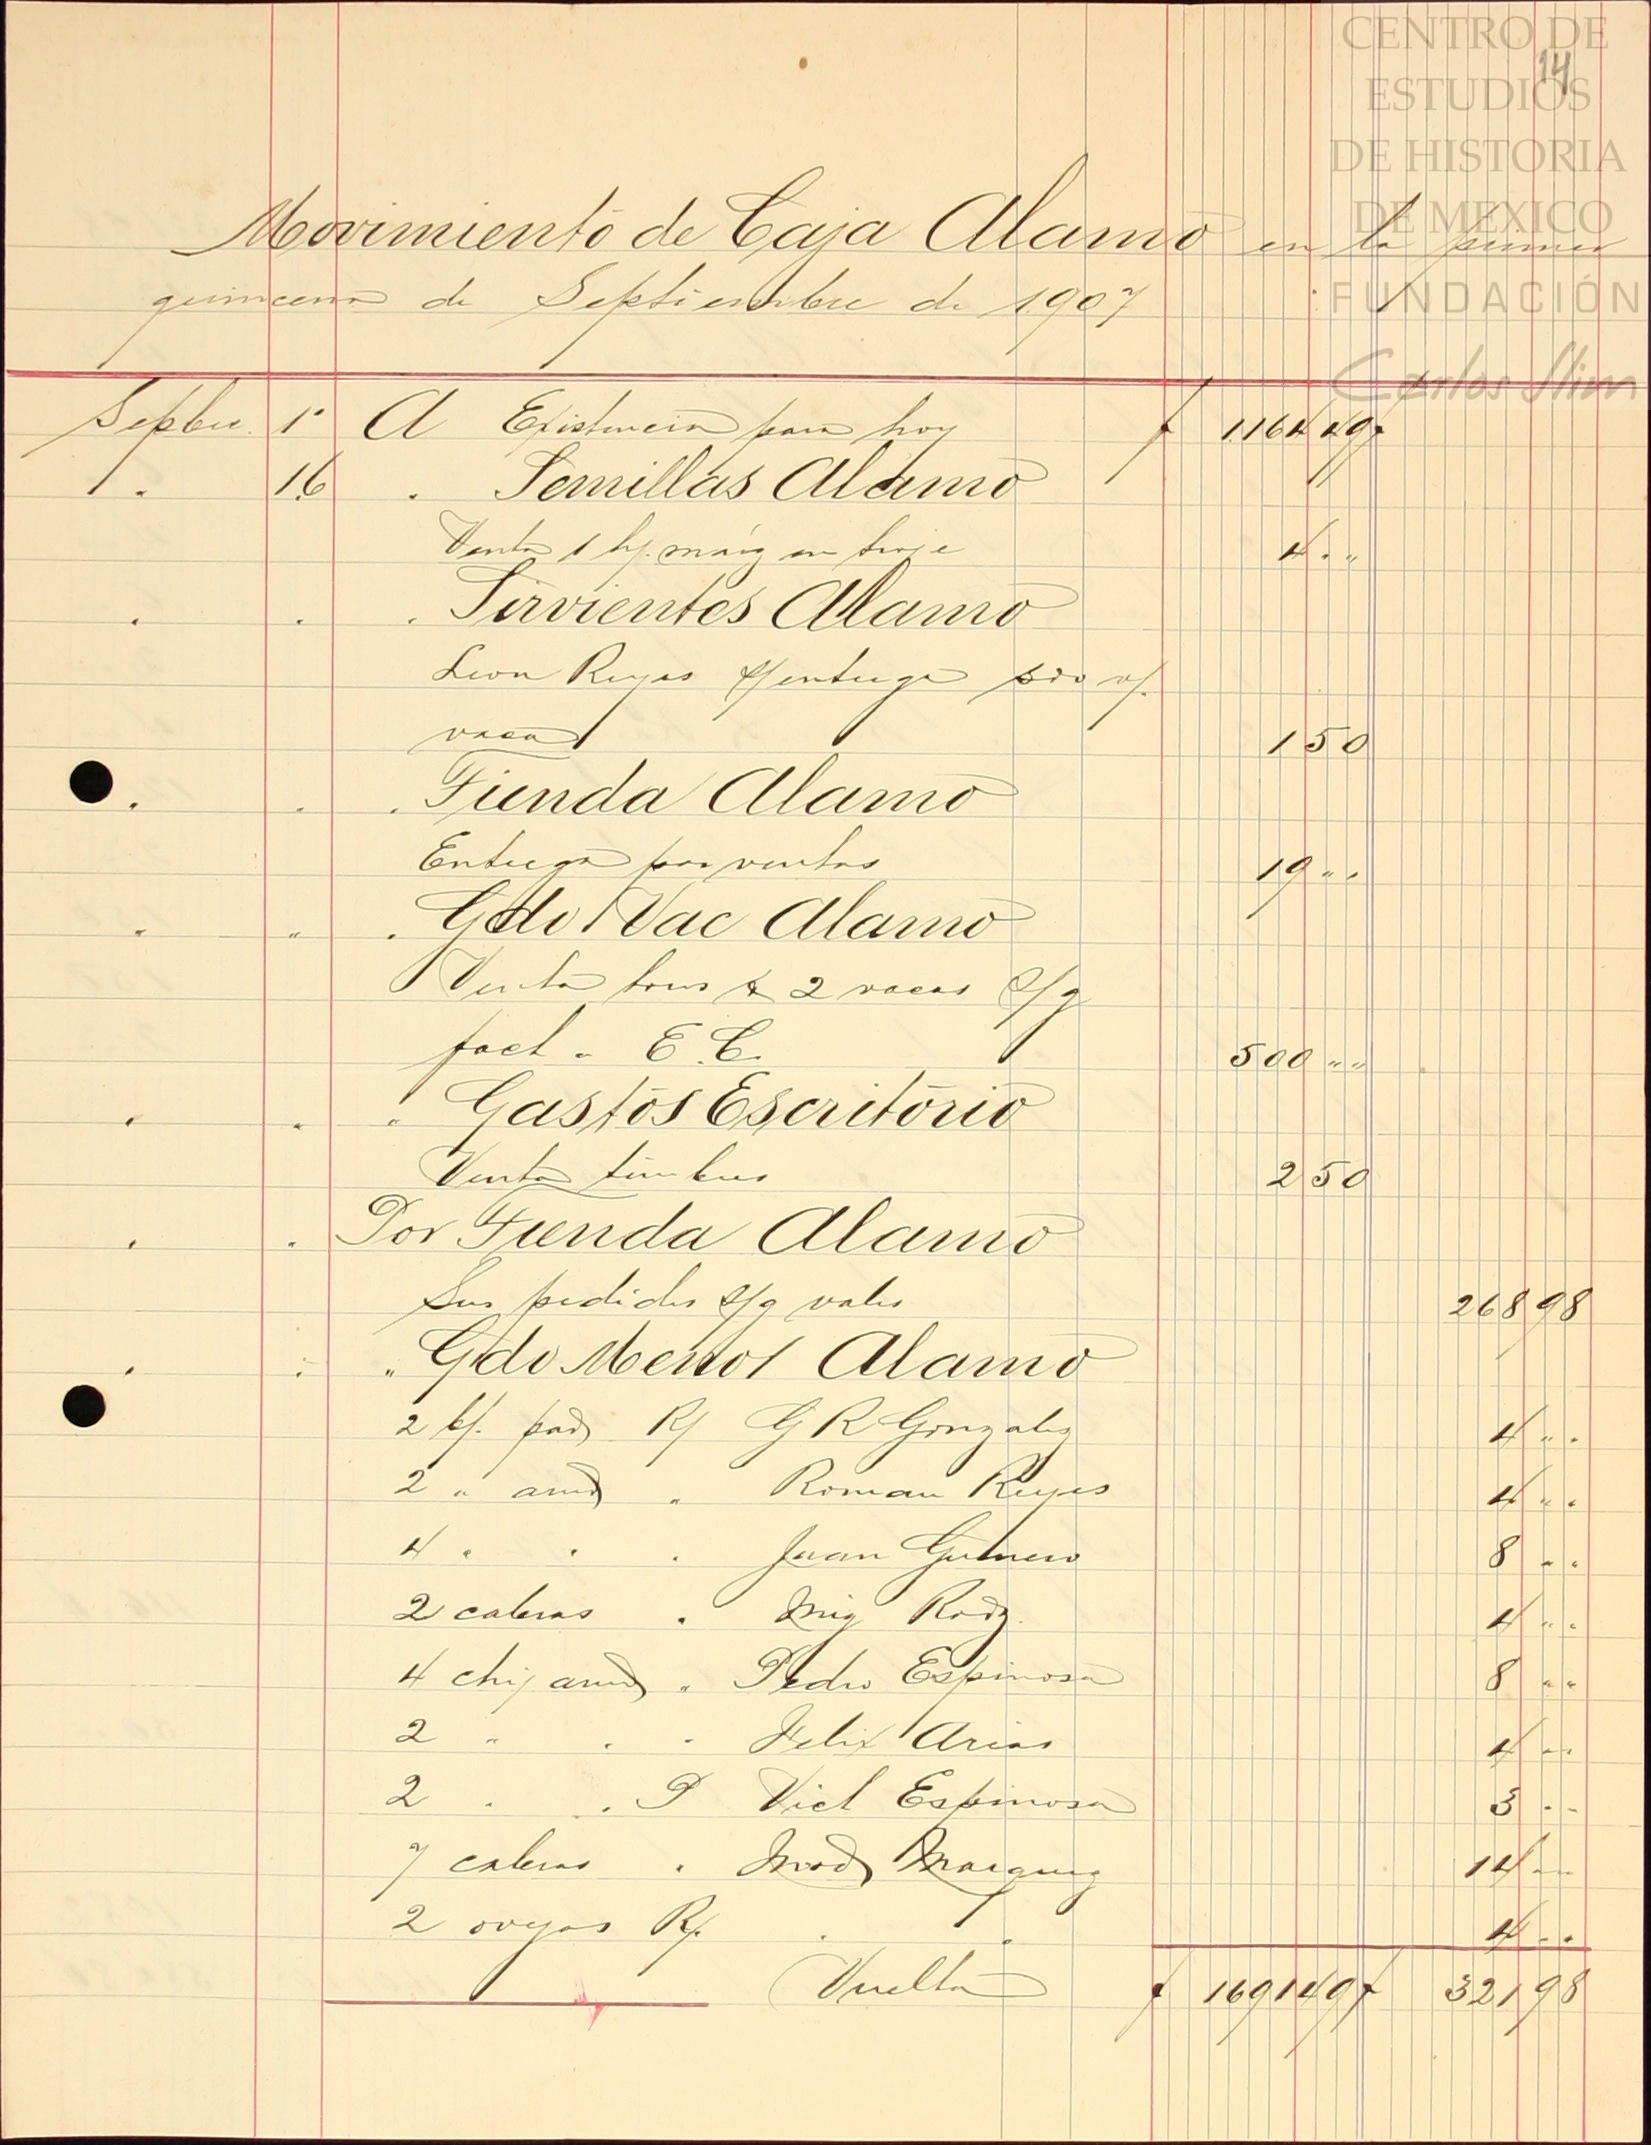 CENTRO DE
14
ESTUDIOS
DE HISTORIA
DE MEXICO
FUNDACIÓN
Carlos Slim
Movimiento de Caja Alamo en la primer
quincena de Septiembre de 1907
Sepbre. 1° A Existencia para hoy 1164 49
" 16 " Semillas Alamo
Venta 1 h/. maíz en troje 4 " "
" " " Sirvientes Alamo
Leon Reyes entrega
vaca 1 50
" " " Tienda Alamo
Entrega por ventas 19 " "
" " " Gdo Vac Alamo
Venta toros & 2 vacas s/g
fact. E. C. 500 " "
" " " Gastos Escritorio
Venta timbres 2 50
" " Por Tienda Alamo
Sus pedidos s/g vales 268 98
" " " Gdo Menor Alamo
2 G R Gonzalez 4 " "
2 " " Roman Reyes 4 " "
4 " " " Juan Guerrero 8 " "
2 cabras " Mig Rodz. 4 " "
4 chi/ " Pedro Espinosa 8 " "
2 " " " Felix Arias 4 " "
2 " " P Vict Espinosa 3 " "
7 cabras " Mod Marquez 14 " "
2 ovejas R/. " " 4 " "
Vuelta 1691 49 321 98